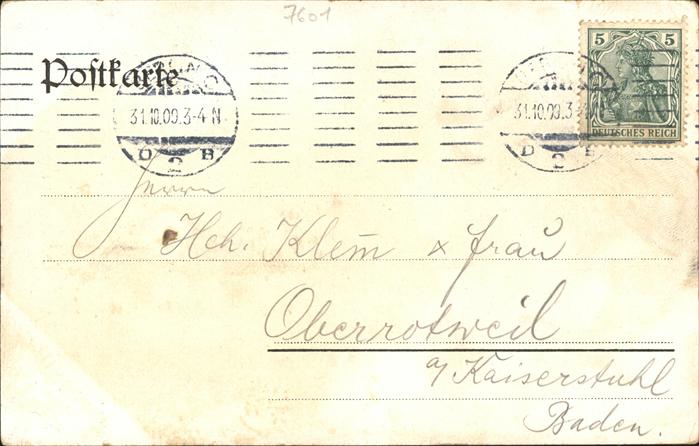 7601
Postkarte
31.10.09.3-4 N
D 2 B
31.10.09.3
D 2 B
5 5
DEUTSCHES REICH
Herrn
Hch. Klem̄ & Frau
Oberrotweil
a/ Kaiserstuhl
Baden.